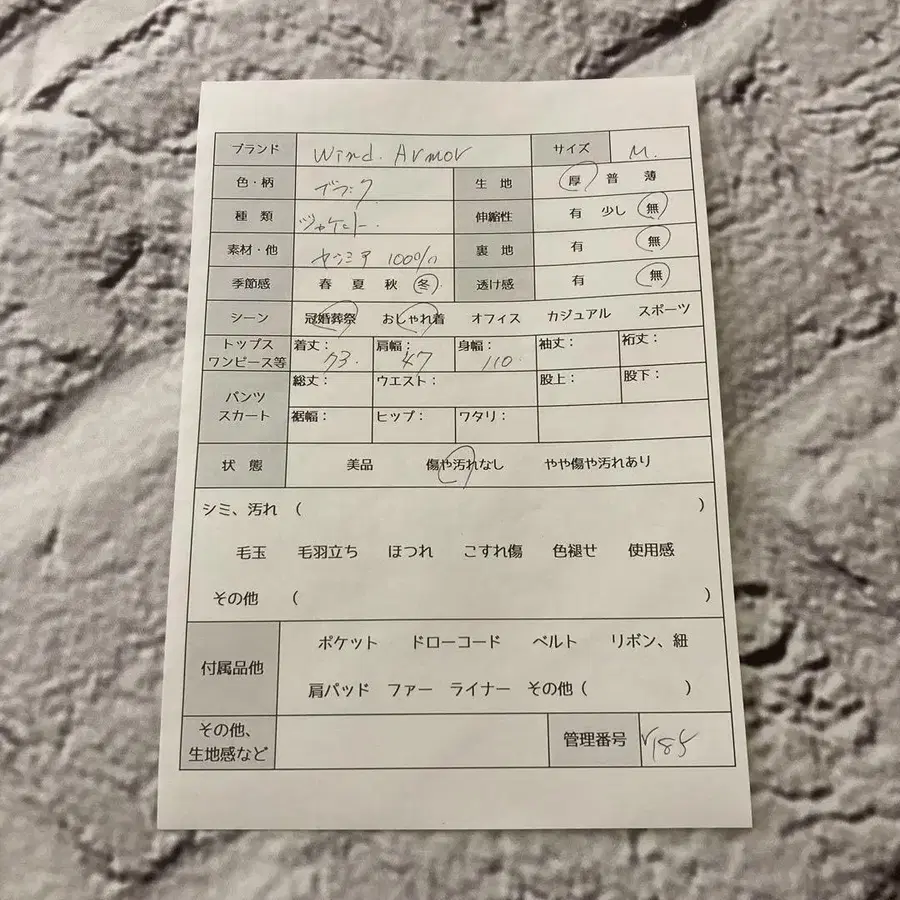 ブランド Wind. Armor サイズ M.
色・柄 ブラック 生地 厚 普 薄
種類 ジャケット. 伸縮性 有 少し 無
素材・他 カシミア 100% 裏地 有 無
季節感 春 夏 秋 冬 透け感 有 無
シーン 冠婚葬祭 おしゃれ着 オフィス カジュアル スポーツ
トップス ワンピース等 着丈: 73. 肩幅: 47 身幅: 110. 袖丈: 裄丈:
パンツ スカート 総丈: ウエスト: 股上: 股下:
裾幅: ヒップ: ワタリ:
状態 美品 傷や汚れなし やや傷や汚れあり
シミ、汚れ ( )
毛玉 毛羽立ち ほつれ こすれ傷 色褪せ 使用感
その他 ( )
付属品他 ポケット ドローコード ベルト リボン、紐
肩パッド ファー ライナー その他 ( )
その他、 生地感など 管理番号 V185